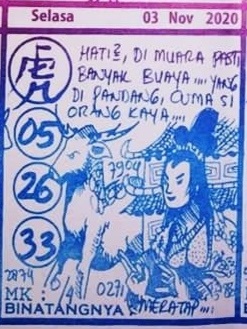 Selasa 03 Nov 2020
虎
HATI2, DI MUARA PASTI
BANYAK BUAYA.... YANG
DI PANDANG, CUMA SI
ORANG KAYA....
05
26
33
7994
2874
0271
MK :
BINATANGNYA MERATAP....